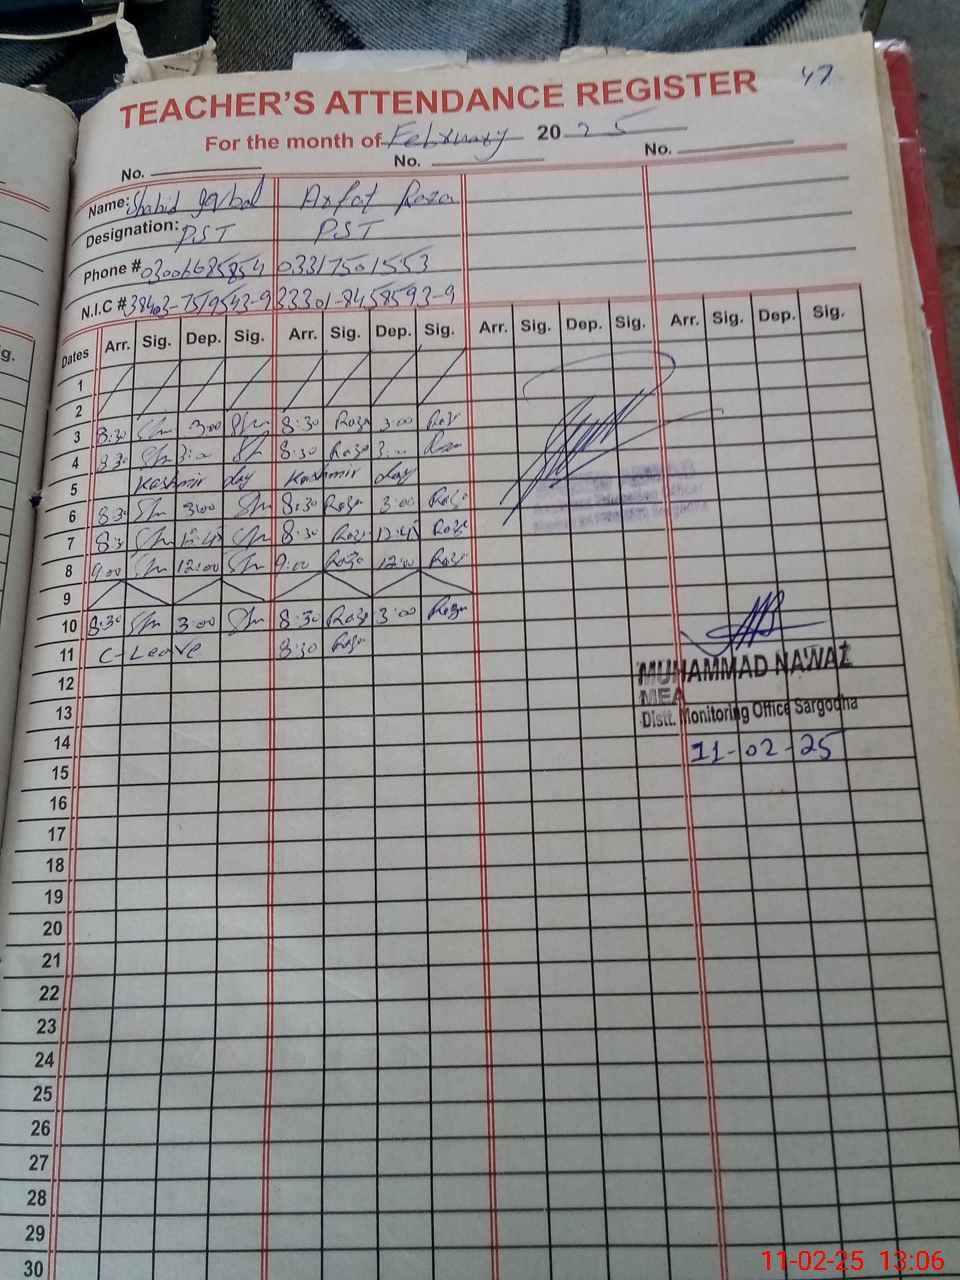 47
TEACHER'S ATTENDANCE REGISTER
For the month of February 2025
No. No. No.
Name: Shahid Iqbal Arfat Raza
Designation: PST PST
Phone # 03006685854 03317501553
N.I.C # 38403-7519543-9 33301-8458593-9
Dates Arr. Sig. Dep. Sig. Arr. Sig. Dep. Sig. Arr. Sig. Dep. Sig. Arr. Sig. Dep. Sig.
g.
1
2
3 8:30 3:00 8:30 Raza 3:00 Raza
4 8:30 3:00 8:30 Raza 3:00 Raza
5 Kashmir day Kashmir day
6 8:30 3:00 8:30 Raza 3:00 Raza
7 8:30 12:45 8:30 Raza 12:45 Raza
8 9:00 12:00 9:00 Raza 12:00 Raza
9
10 8:30 3:00 8:30 Raza 3:00 Raza
11 C-Leave 8:30 Raza
12
13
14
15
16
17
18
19
20
21
22
23
24
25
26
27
28
29
30
MUHAMMAD NAWAZ
MEA
Distt. Monitoring Office Sargodha
11-02-25
11-02-25 13:06